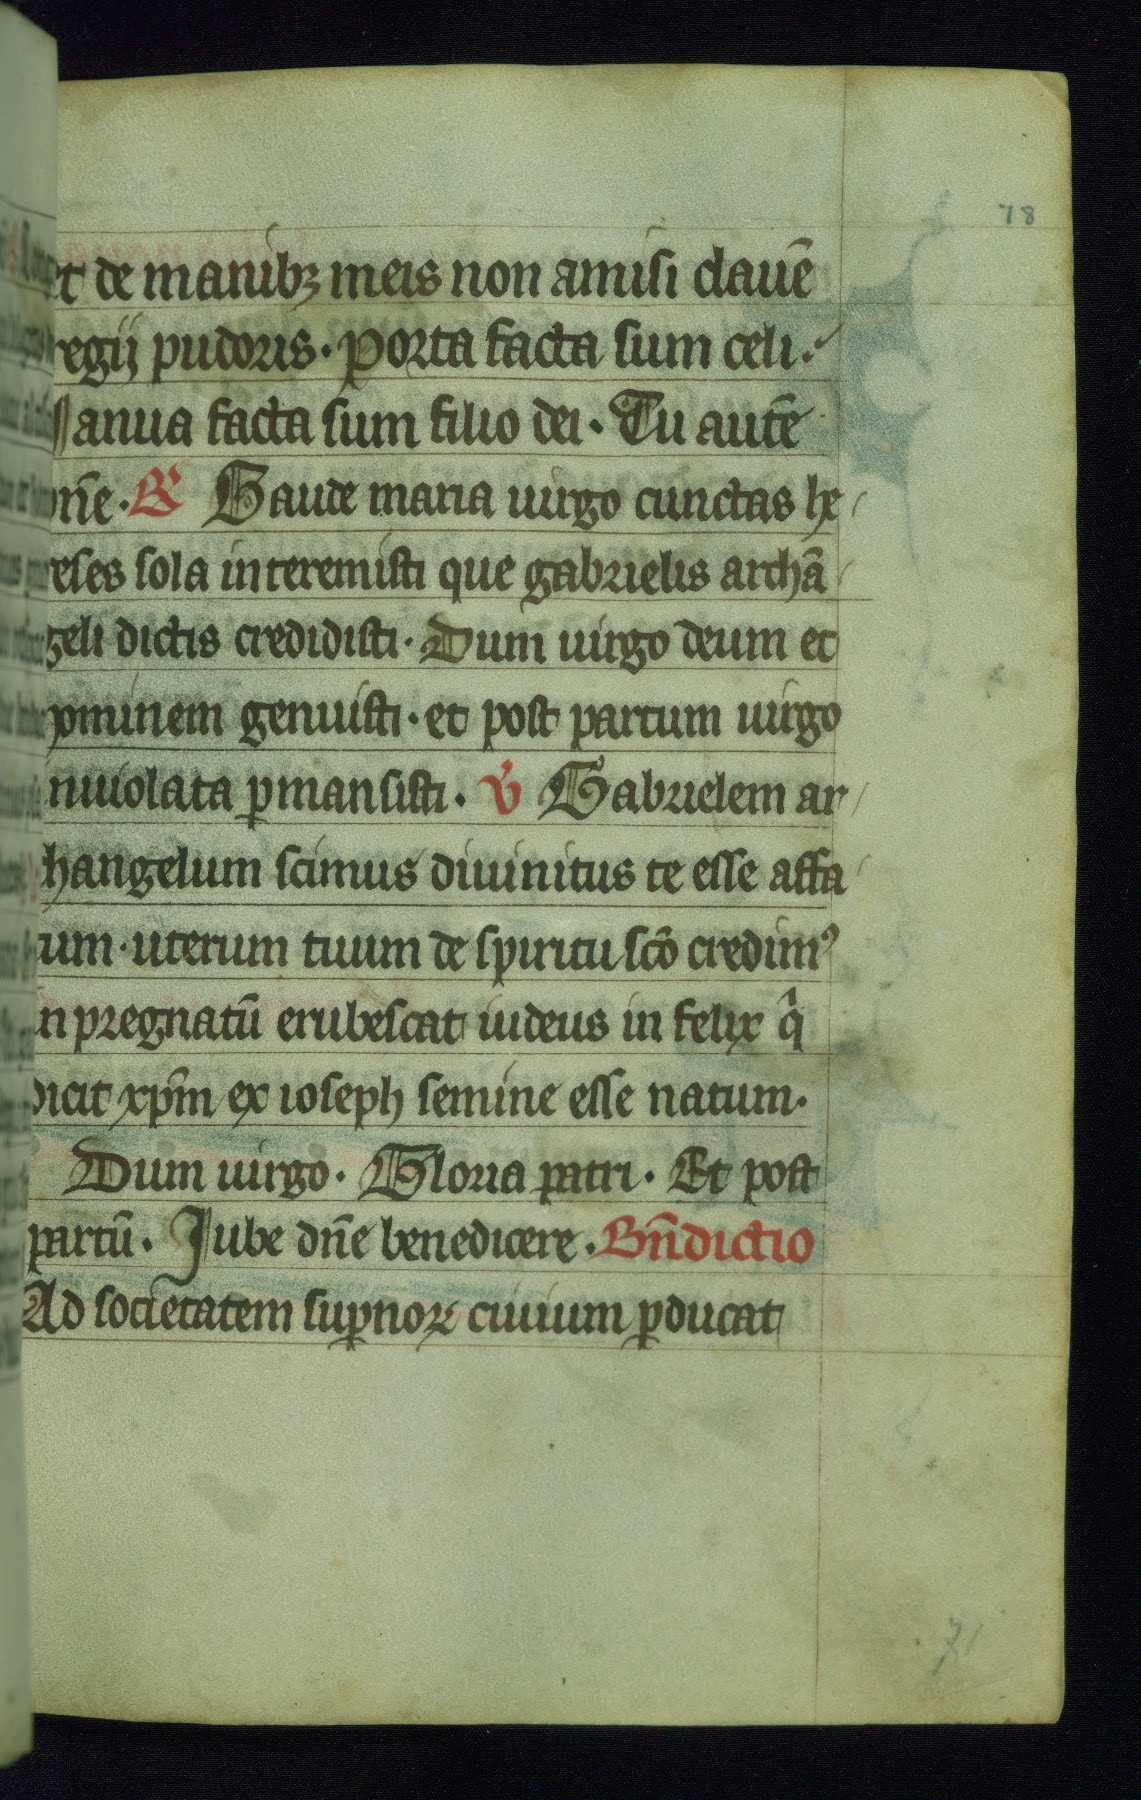 78
et de manibꝫ meis non amisi clauē
regij pudoris · Porta facta sum celi ·
Ianua facta sum filio dei · Tu autē
dn̄e · ℟ Gaude maria uirgo cunctas he
reses sola interemisti que gabrielis archā
geli dictis credidisti · Dum uirgo deum et
hominem genuisti · et post partum uirgo
inuiolata ꝑmansisti · ℣ Gabrielem ar
changelum scimus diuinitus te esse affa
tum · uterum tuum de spiritu sc̄o credimꝰ
in pregnatū erubescat iudeus in felix qͥ
dicit xp̄m ex ioseph semine esse natum ·
Dum uirgo · Gloria patri · Et post
partū · Iube dn̄e benedicere · Bn̄dictio
Ad societatem suꝑnoꝝ ciuium ꝑducat
71